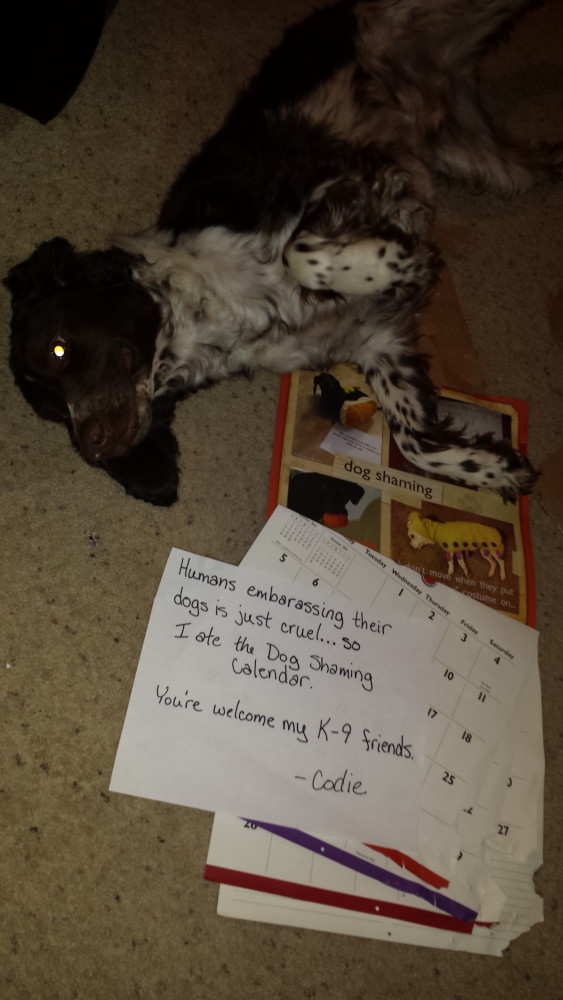 dog shaming
don't move when they put
costume on...
Tuesday Wednesday Thursday Friday Saturday
5 6 1 2 3 4
10 11
17 18
25
27
26
Humans embarassing their
dogs is just cruel... so
I ate the Dog Shaming
Calendar.
You're welcome my K-9 friends.
- Codie